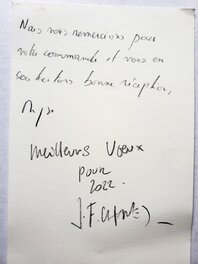 Nous vous remercions pour
votre commande et vous en
souhaitons bonne réception,
Meilleurs Voeux
pour
2022.
J.F.